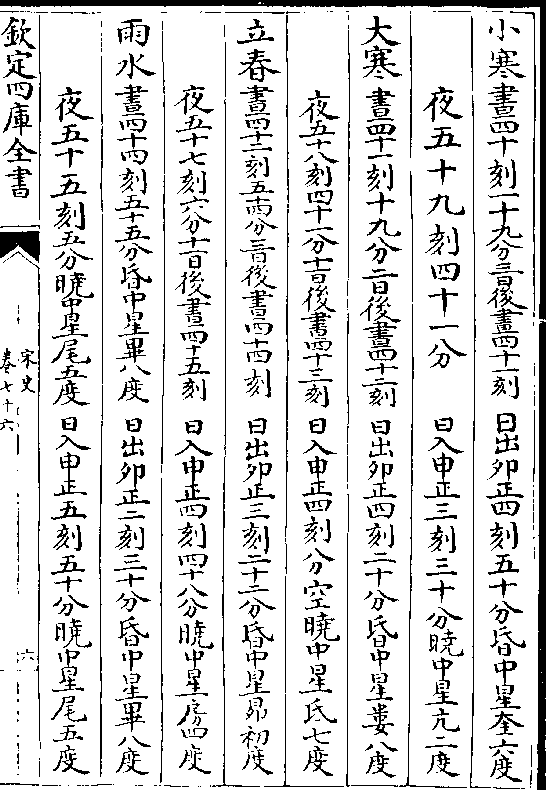 小寒晝四十刻一十九分三日後晝四十一刻 日出卯正四刻五十分昏中星奎六度
夜五十九刻四十一分 日入申正三刻三十分曉中星亢二度
大寒晝四十一刻十九分二日後晝四十二刻 日出卯正四刻二十分昏中星婁八度
夜五十八刻四十一分十一日後晝四十三刻 日入申正四刻八分空曉中星氐七度
立春晝四十二刻五十四分三日後晝四十四刻 日出卯正三刻二十二分昏中星昴初度
夜五十七刻六分十一日後晝四十五刻 日入申正四刻四十八分曉中星房四度
雨水晝四十四刻五十五分昏中星畢八度 日出卯正二刻三十分昏中星畢八度
夜五十五刻五分曉中星尾五度 日入申正五刻五十分曉中星尾五度
欽定四庫全書 宋史 卷七十六 六